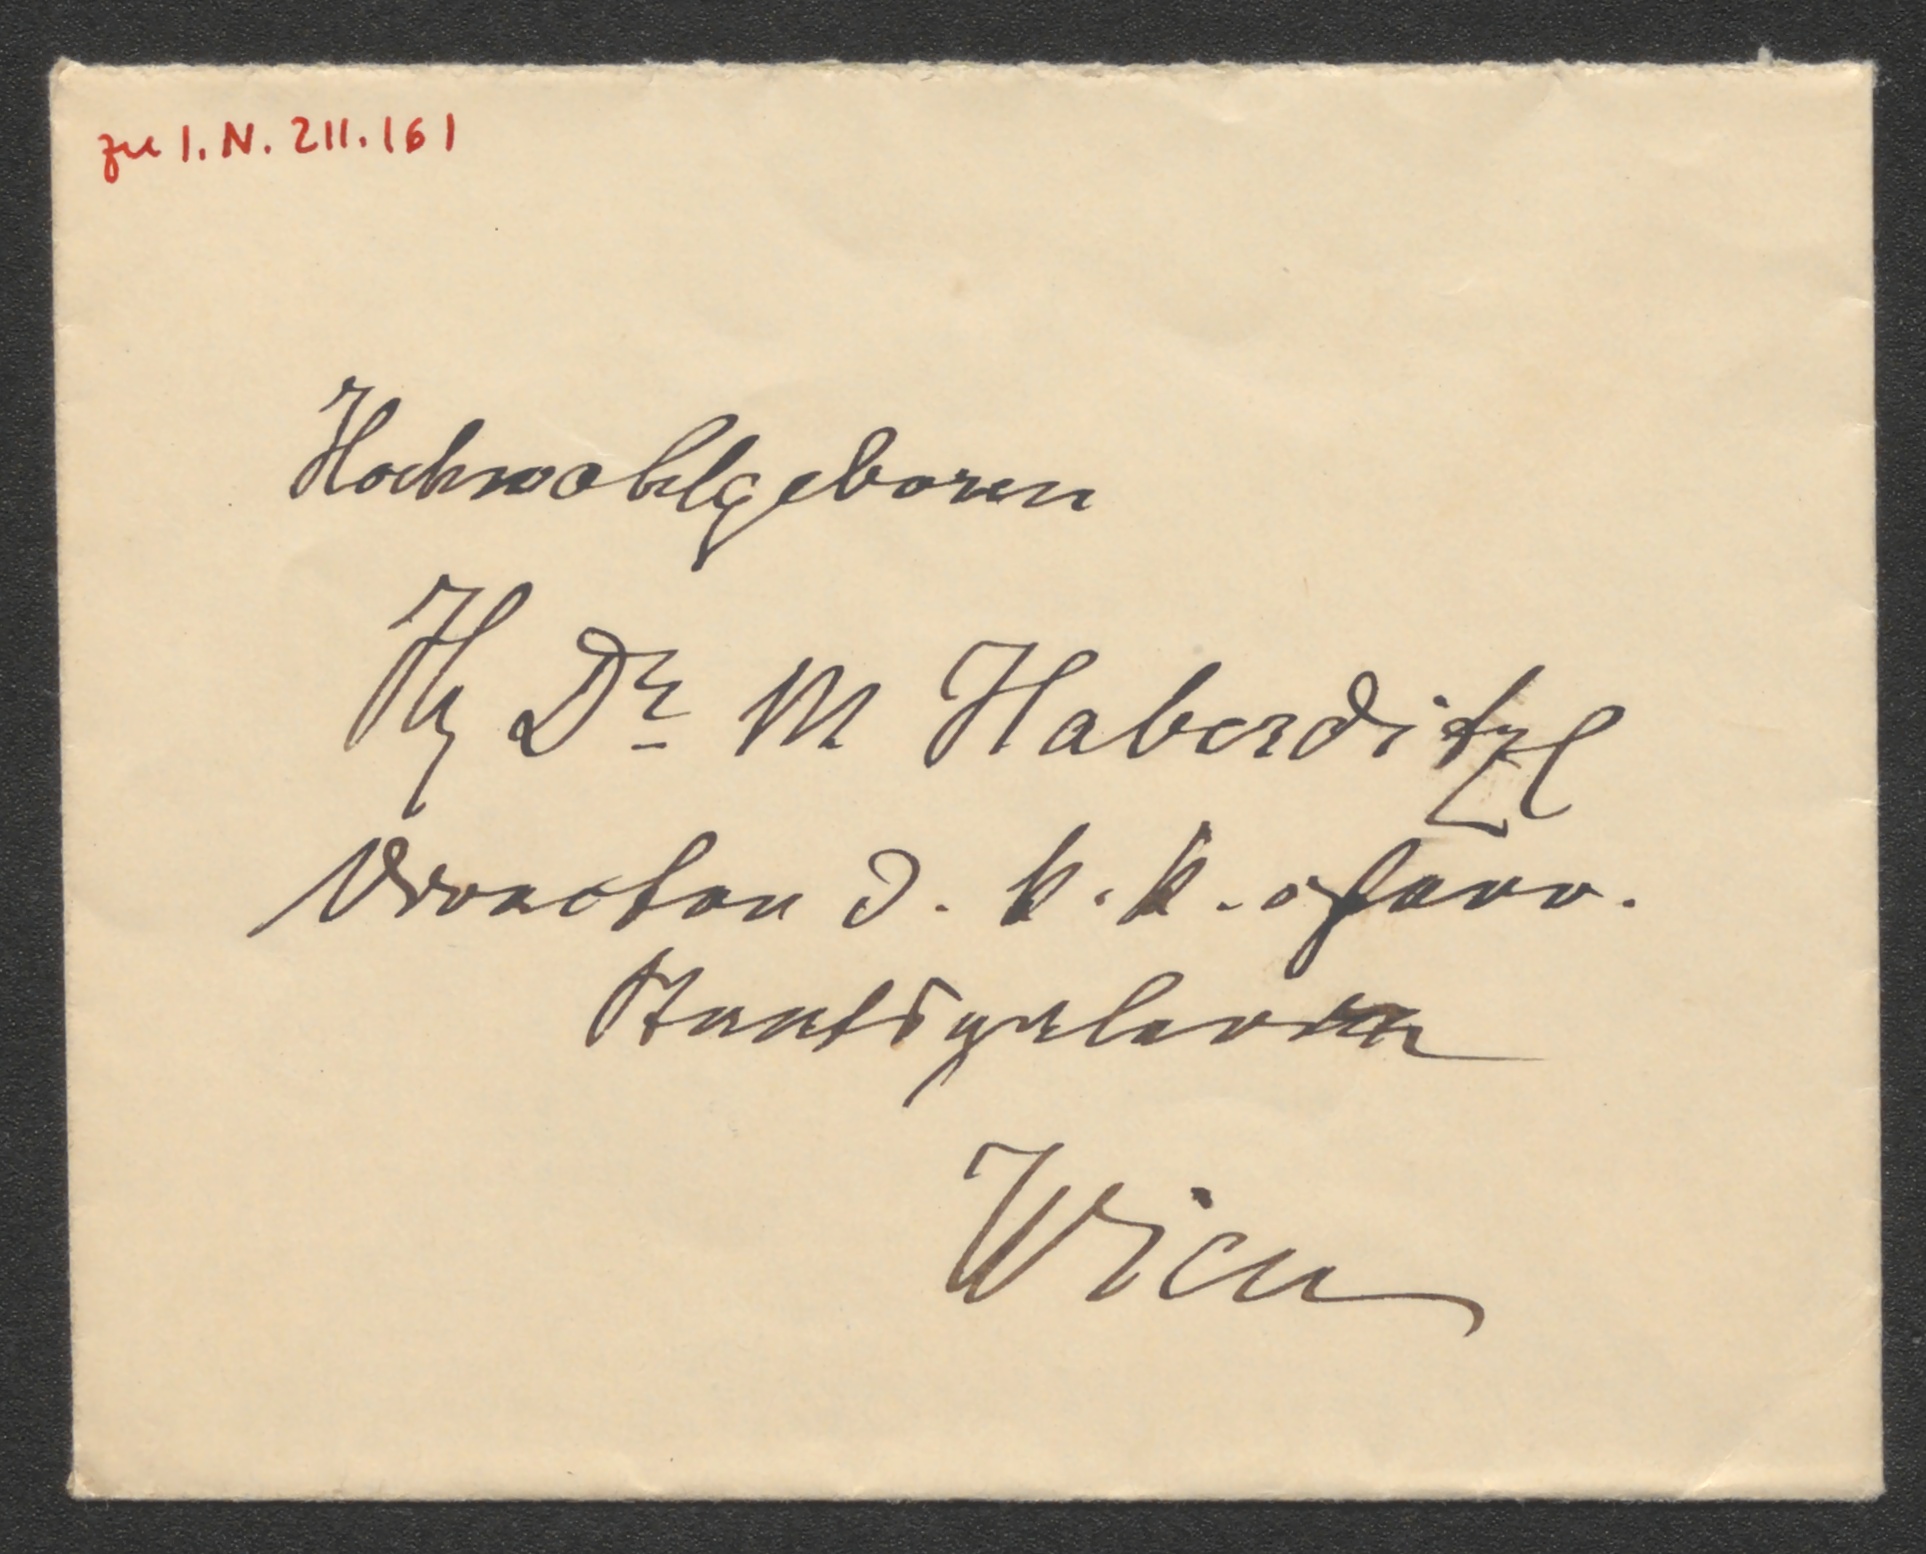 zu I.N. 211.161
Hochwohlgeboren
H Dr M Haberditzl
Director d. k. k. österr.
Staatsgalerie
Wien